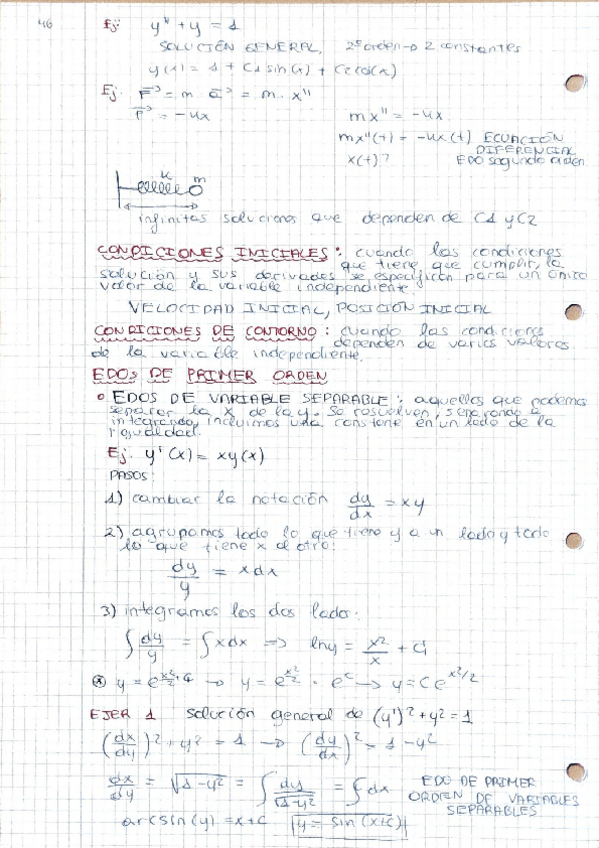 46
Ej: y'' + y = 1
SOLUCIÓN GENERAL, 2º orden → 2 constantes
y(x) = 1 + C1 sin(x) + C2 cos(x)
Ej. F⃗ = m a⃗ = m · x''
F⃗ = -ux
mx'' = -ux
mx''(t) = -ux(t) ECUACIÓN DIFERENCIAL
x(t)? EDO segundo orden
k m
infinitas soluciones que dependen de C1 y C2
CONDICIONES INICIALES: cuando las condiciones
que tiene que cumplir, la
solución y sus derivadas se especifican para un único
valor de la variable independiente.
VELOCIDAD INICIAL, POSICIÓN INICIAL
CONDICIONES DE CONTORNO: cuando las condiciones
dependen de varios valores
de la variable independiente.
EDOS DE PRIMER ORDEN
• EDOS DE VARIABLE SEPARABLE: aquellos que podemos
separar la x de la y. Se resuelven, separando e
integrando, incluimos una constante en un lado de la
igualdad.
Ej. y'(x) = xy(x)
PASOS:
1) cambiar la notación dy/dx = xy
2) agrupamos todo lo que tiene y a un lado y todo
lo que tiene x al otro:
dy/y = xdx
3) integramos los dos lado:
∫ dy/y = ∫ xdx ⇒ lny = x²/x + C1
⊛ y = e^(x²/2 + C) → y = e^(x²/2) · e^c → y = Ce^(x²/2)
EJER 1 solución general de (y')² + y² = 1
(dx/dy)² + y² = 1 → (dy/dx)² = 1 - y²
dx/dy = √(1-y²) = ∫ dy/√(1-y²) = ∫ dx EDO DE PRIMER
ORDEN DE VARIABLES
SEPARABLES
arcsin(y) = x+c |y = sin(x+c)|